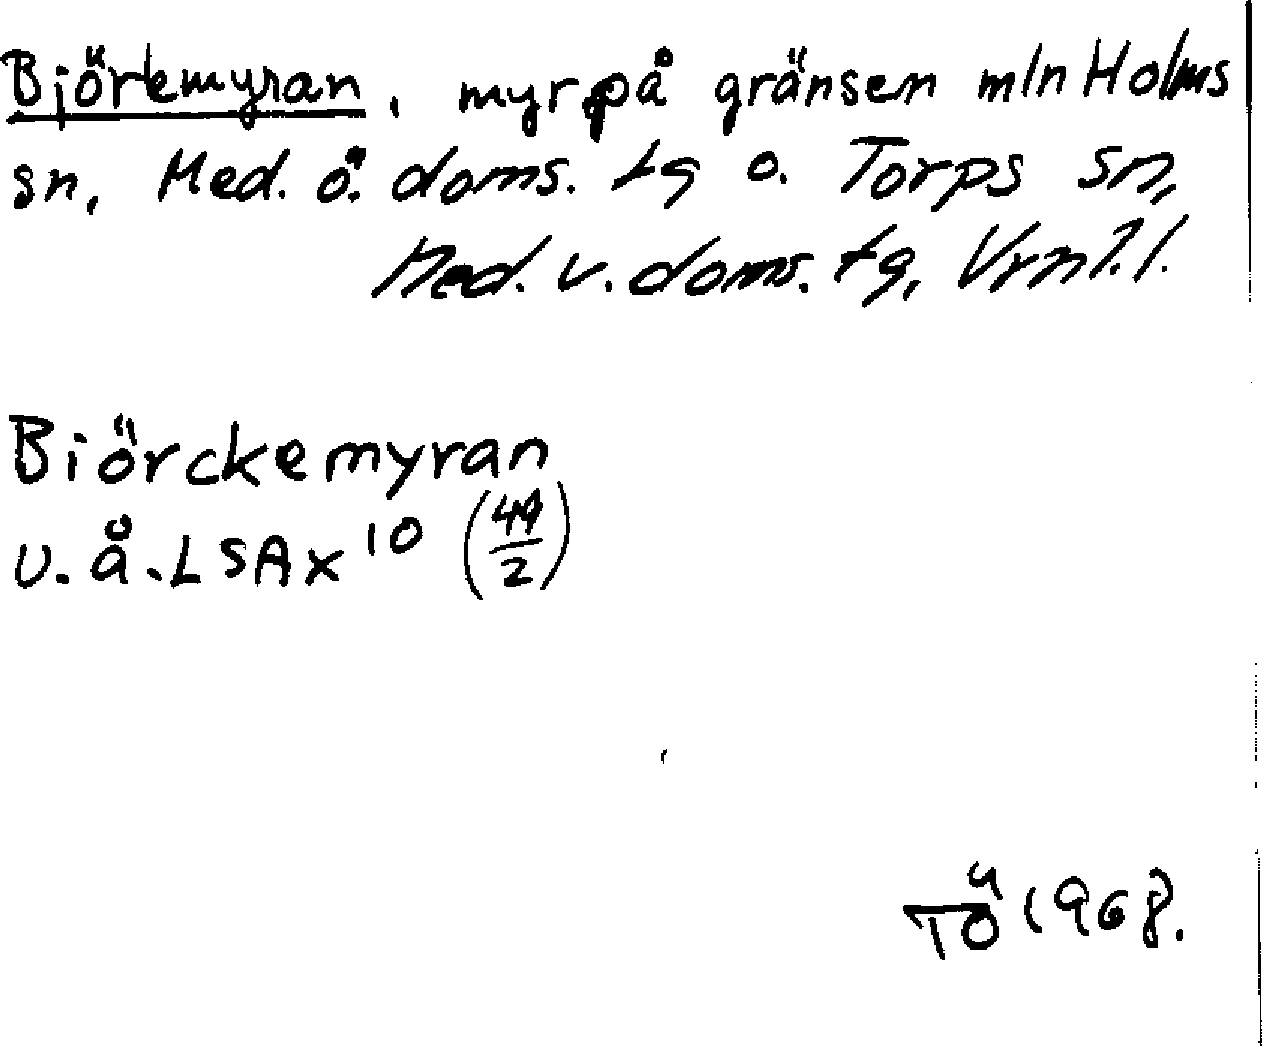 Björkemyran, myr på gränsen mln Holms
sn, Med. ö. doms. tg o. Torps sn,
Med. v. doms. tg, Vrnl. l.
Biörckemyran
U. å. LSA x¹⁰ (49/2)
TÖ 1968.